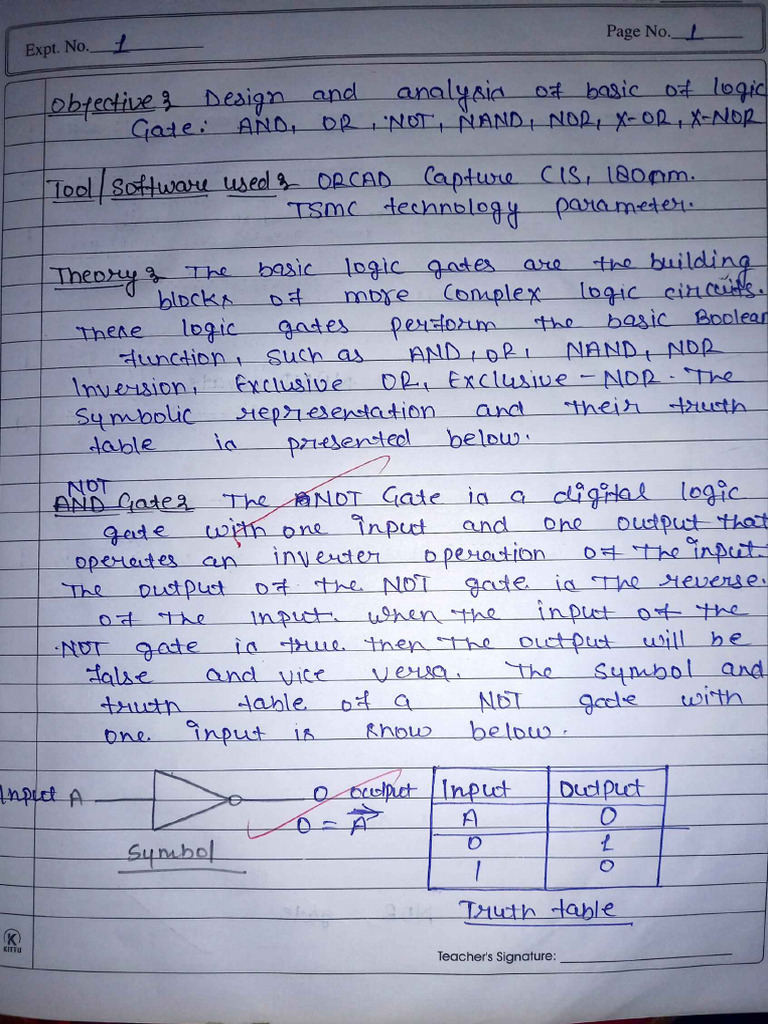 Expt. No. 1
Page No. 1
Objective: Design and analysis of basic of logic
Gate: AND, OR, NOT, NAND, NOR, X-OR, X-NOR
Tool/Software used: ORCAD Capture CIS, 180nm.
TSMC technology parameter.
Theory: The basic logic gates are the building
blocks of more complex logic circuits.
These logic gates perform the basic Boolean
function, such as AND, OR, NAND, NOR
Inversion, Exclusive OR, Exclusive-NOR. The
symbolic representation and their truth
table is presented below.
NOT
AND Gate: The NOT Gate is a digital logic
gate with one input and one output that
operates an inverter operation of the input.
The output of the NOT gate is the reverse.
of the input. when the input of the
NOT gate is true then the output will be
false and vice versa. The symbol and
truth table of a NOT gate with
one input is show below.
Input A O output Input Output
O = A A O
0 1
Symbol 1 0
Truth table
K
KITTU
Teacher's Signature: